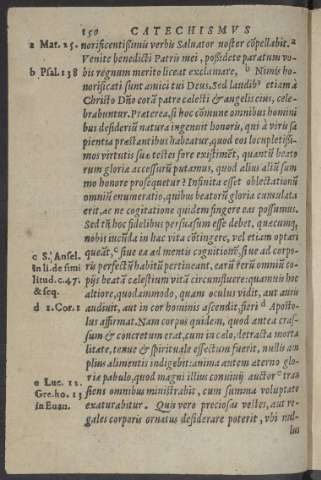 150 CATECHISMVS
a Mat. 25. norificentissimis verbis Saluator noster cõpellabit. a
Venite benedicti Patris mei, possidete paratum vo-
b Psal. 138 bis regnum merito liceat exclamare, b Nimis ho-
norificati sunt amici tui Deus. Sed laudib9 etiam à
Christo Dño corã patre cælesti & angelis eius, cele-
brabuntur. Præterea, si hoc cõmune omnibus homini
bus desideriũ natura ingenuit honoris, qui à viris sa
pientia præstantibus habeatur, quod eos locupletissi-
mos virtutis suæ testes fore existimẽt, quantũ beato
rum gloria accessurũ putamus, quod alius aliũ sum
mo honore prosequetur? Infinita esset oblectationũ
omniũ enumeratio, quibus beatorũ gloria cumulata
erit, ac ne cogitatione quidem fingere eas possumus.
Sed tñ hoc fidelibus persuasum esse debet, quæcunq;
nobis iucũda in hac vita cõtingere, vel etiam optari
c S. Ansel. queãt, c siue ea ad mentis cognitionẽ, siue ad corpo-
in li. de simi ris perfectũ habitũ pertineant, earũ rerũ omniũ co-
litud. c. 47. pijs beatã cælestium vitã circumfluere: quamuis hoc
& seq. altiore, quodammodo, quam oculus vidit, aut auris
d 1. Cor. 2 audiuit, aut in cor hominis ascendit, fieri d Aposto-
lus affirmat. Nam corpus quidem, quod antea cras-
sum & concretum erat, cum in cælo, detracta morta
litate, tenue & spirituale effectum fuerit, nullis am
plius alimentis indigebit: anima autem æterno glo-
e Luc. 12. riæ pabulo, quod magni illius conuiuij auctor e tran
Gre. ho. 13 siens omnibus ministrabit, cum summa voluptate
in Euan. exaturabitur. Quis vero preciosas vestes, aut re-
gales corporis ornatus desiderare poterit, vbi nul-
lus